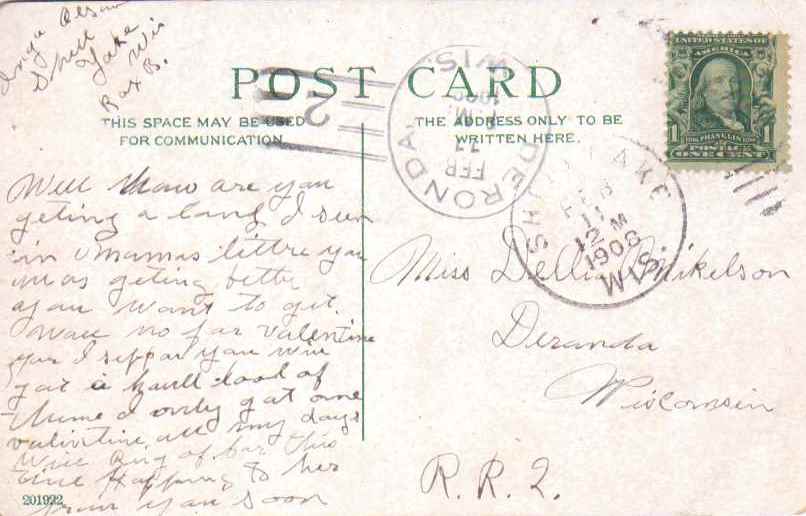 Inga Olson
Shell
Lake
Wis
Box B.
POST CARD
THIS SPACE MAY BE USED
FOR COMMUNICATION.
THE ADDRESS ONLY TO BE
WRITTEN HERE.
UNITED STATES OF
AMERICA
1 FRANKLIN 1
POSTAGE
ONE CENT
DERONDA WIS.
FEB
2
SHELL LAKE
FEB
11
12 M
1906
WIS.
Well how are you
geting a land I seen
in Mamas lettre you
was geting bette
agan want to git.
Wall no far valentine
yur I suppos you will
gat a haull load of
thume I only gat one
valintine all my days
Will Ring of far this
time Hopping to her
from you soon
Miss Della Mikelson
Deranda
Wisconsin
R.R.2.
201922